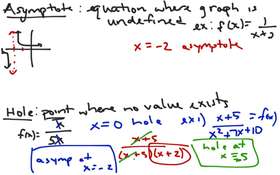 Asymptote: equation where graph is
undefined ex: f(x) = 1/(x+2)
x = -2 asymptote
Hole: point where no value exists
f(x) = x/5x x = 0 hole ex) (x+5)/(x²+7x+10) = f(x)
asymp at x = -2
(x+5)/((x+5)(x+2))
hole at x = -5